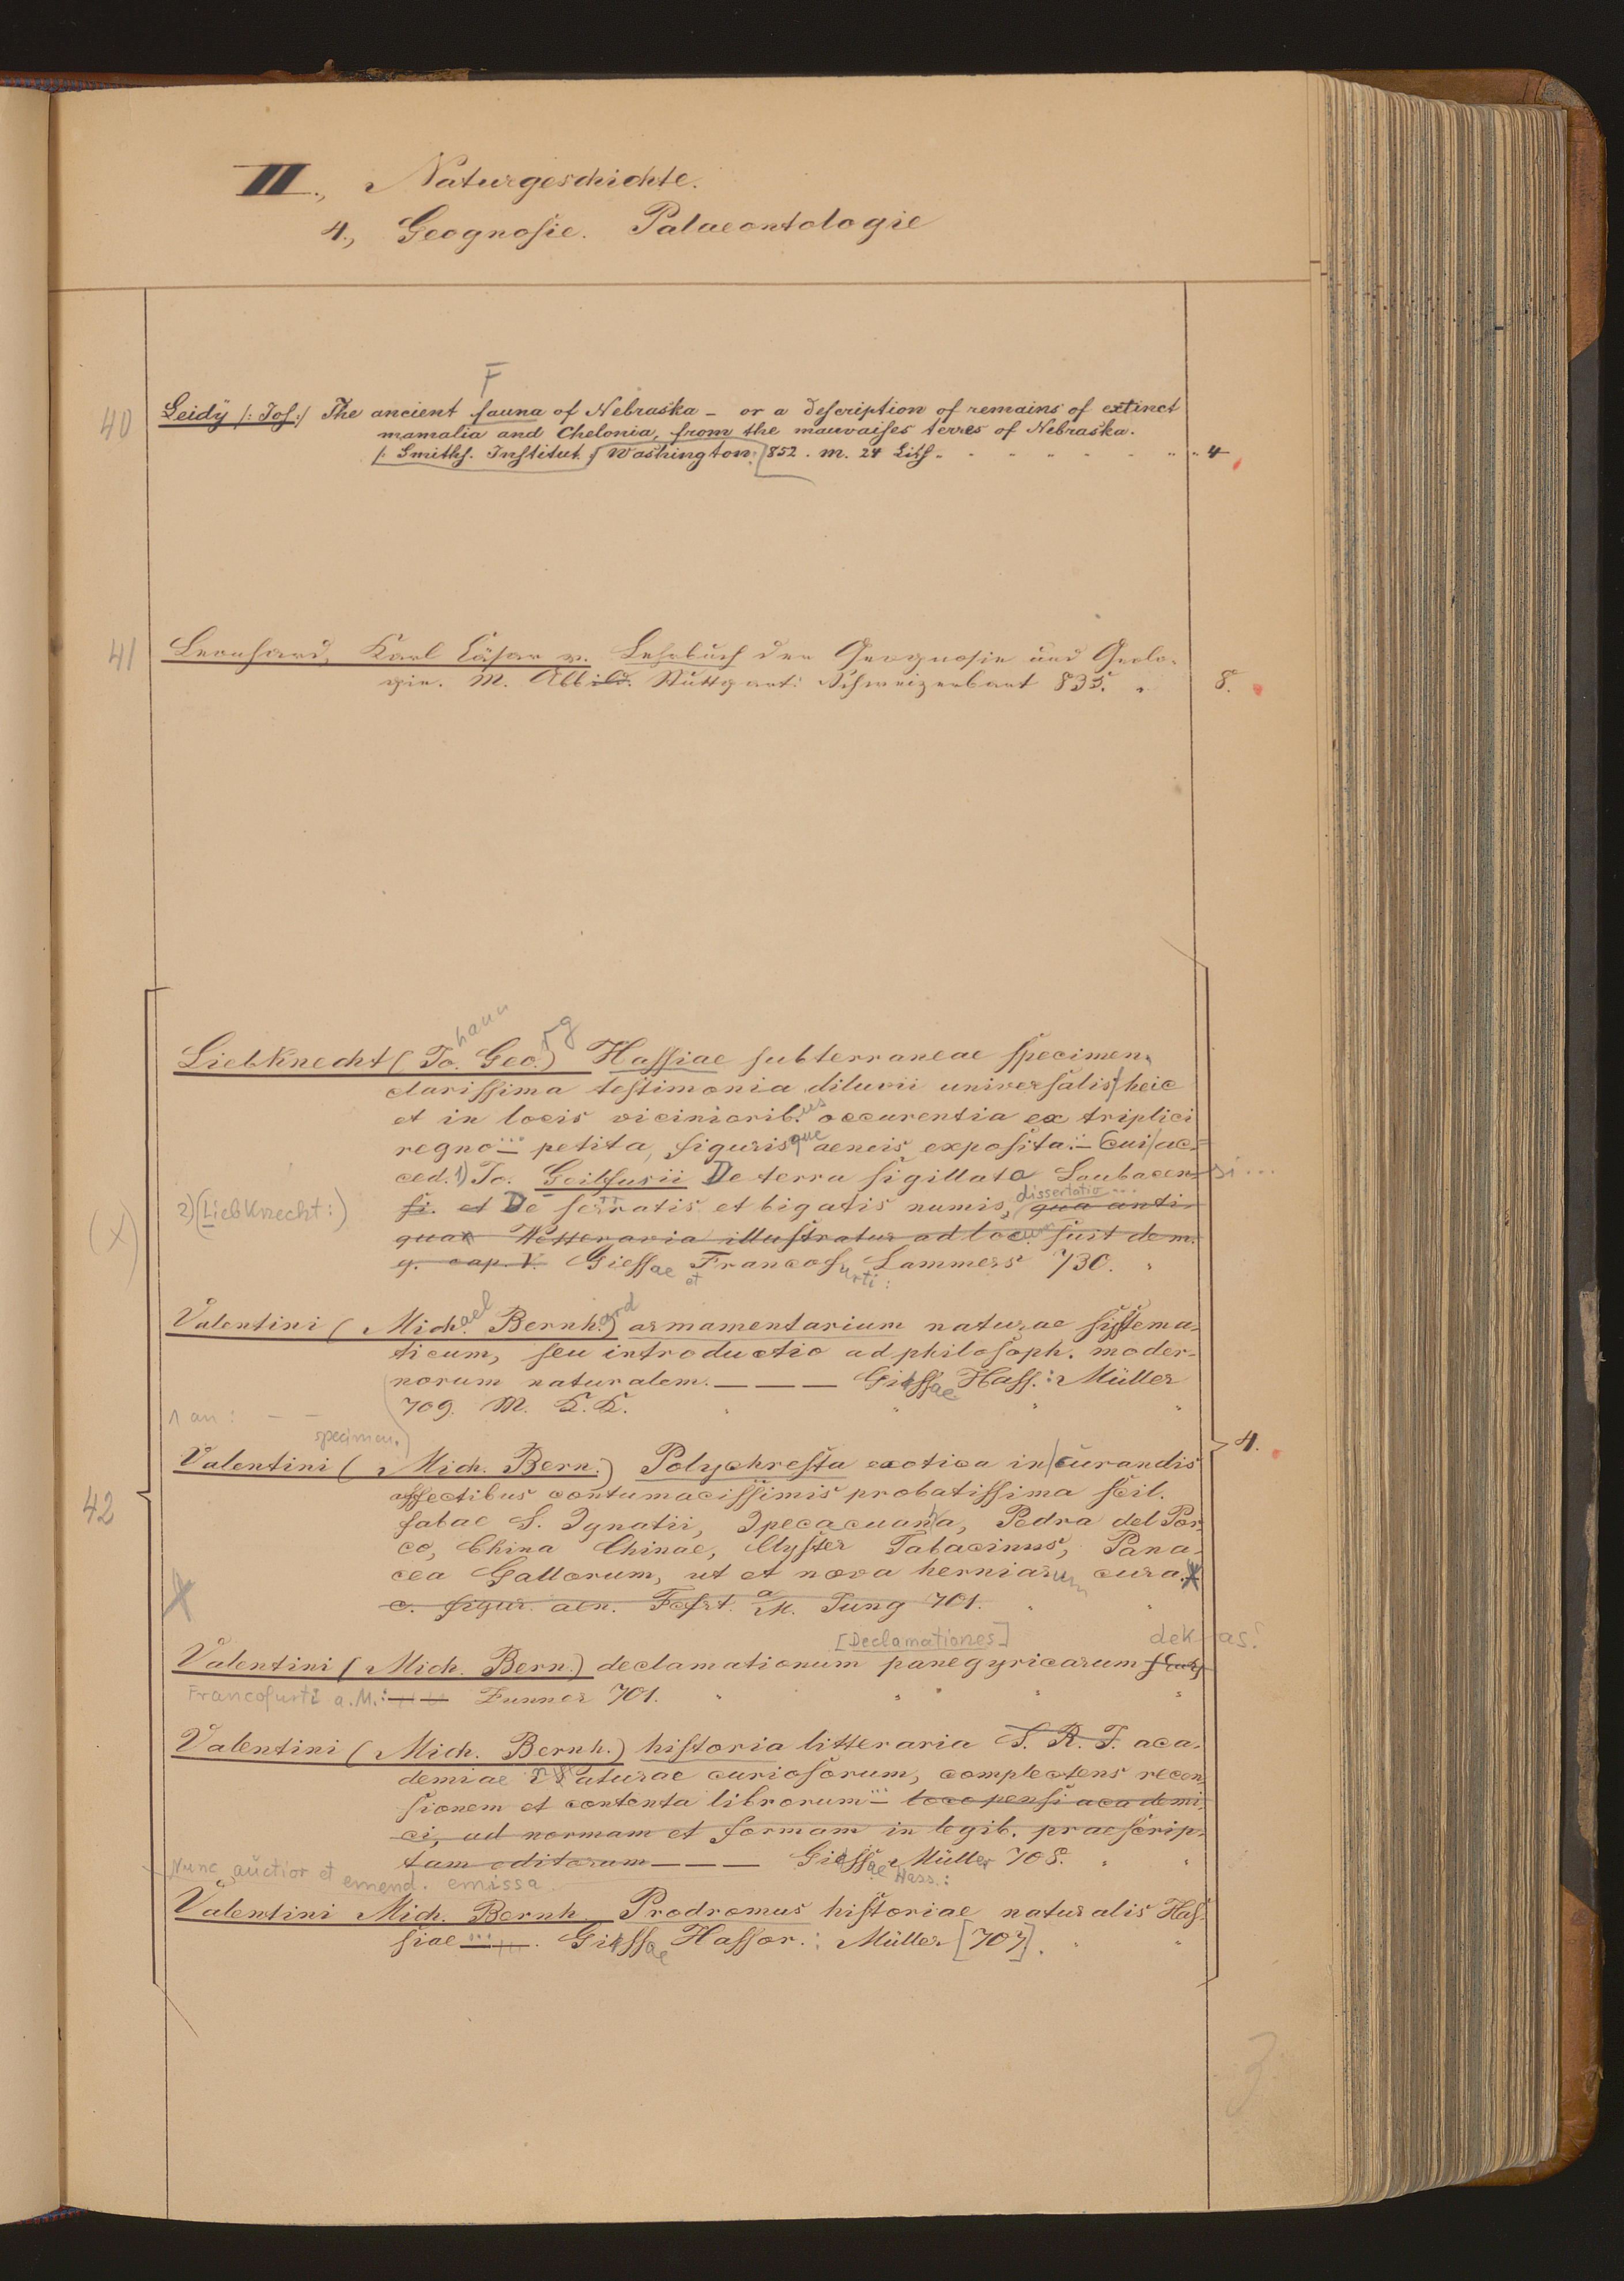 III., Naturgeschichte.
4., Geognosie. Palaeontologie
F
40 Leidÿ /: Jos:/ The ancient fauna of Nebraska – or a description of remains of extinct
mamalia and Chelonia, from the mauvaises terres of Nebraska.
/: Smiths. Institut. Washington: 852. m. 24 Lith. 4
41 Leonhard, Karl Cäsar v. Lehrbuch der Geognosie und Geolo-
gie. M. Abbild. Stuttgart: Schweizerbart 835. 8.
hann rg
Liebknecht (Jo. Geo.) Hassiae subterraneae specimen,
clarissima testimonia diluvii universalis, heic
et in locis vicinioribus occurentia ex triplici
regno... petita, figurisque aeneis exposita.– Cui ac-
ced. 1) Jo. Geilfusii De terra sigillata Laubacen- si...
2) (Liebknecht:) si. et De serratis et bigatis numis, qua anti- dissertatio...
(x) qua Wetteravia illustratur ad loc. Just dem.
g. cap. V. Giessae et Francofurti: Lammers 730.
Valentini (Michael Bernhard) armamentarium naturae sistema-
ticum, seu introductio ad philosoph. moder-
norum naturalem. — — — Giessae Hass.: Müller
709. M. K.K.
1 an: – – specimen.)
Valentini (Mich. Bern.) Polychresta exotica in curandis 4.
42 affectibus contumacissimis probatissima scil.
fabae S. Ignatii, Ipecacuanha, Pedra del Por-
co, China Chinae, Clyster Tabacinus, Pana-
cea Gallorum, ut et nova herniarum cura.
x c. figur. aen. Fcfrt. a/M. Jung 701.
[Declamationes] dekas?
Valentini (Mich. Bern.) declamationum panegyricarum
Francofurti a.M.: — — Zunner 701.
Valentini (Mich. Bernh.) historia litteraria S. R. I. aca-
demiae naturae curiosorum, complectens recen-
sionem et contenta librorum... – loco pensi academi-
ci, ad normam et formam in legib. praescrip-
tam editorum — — — Giessae Hass.: Müller 708.
Nunc auctior et emend. emissa
Valentini Mich. Bernh. Prodromus historiae naturalis Has-
siae ... . Giessae Hassor.: Müller [707].
3